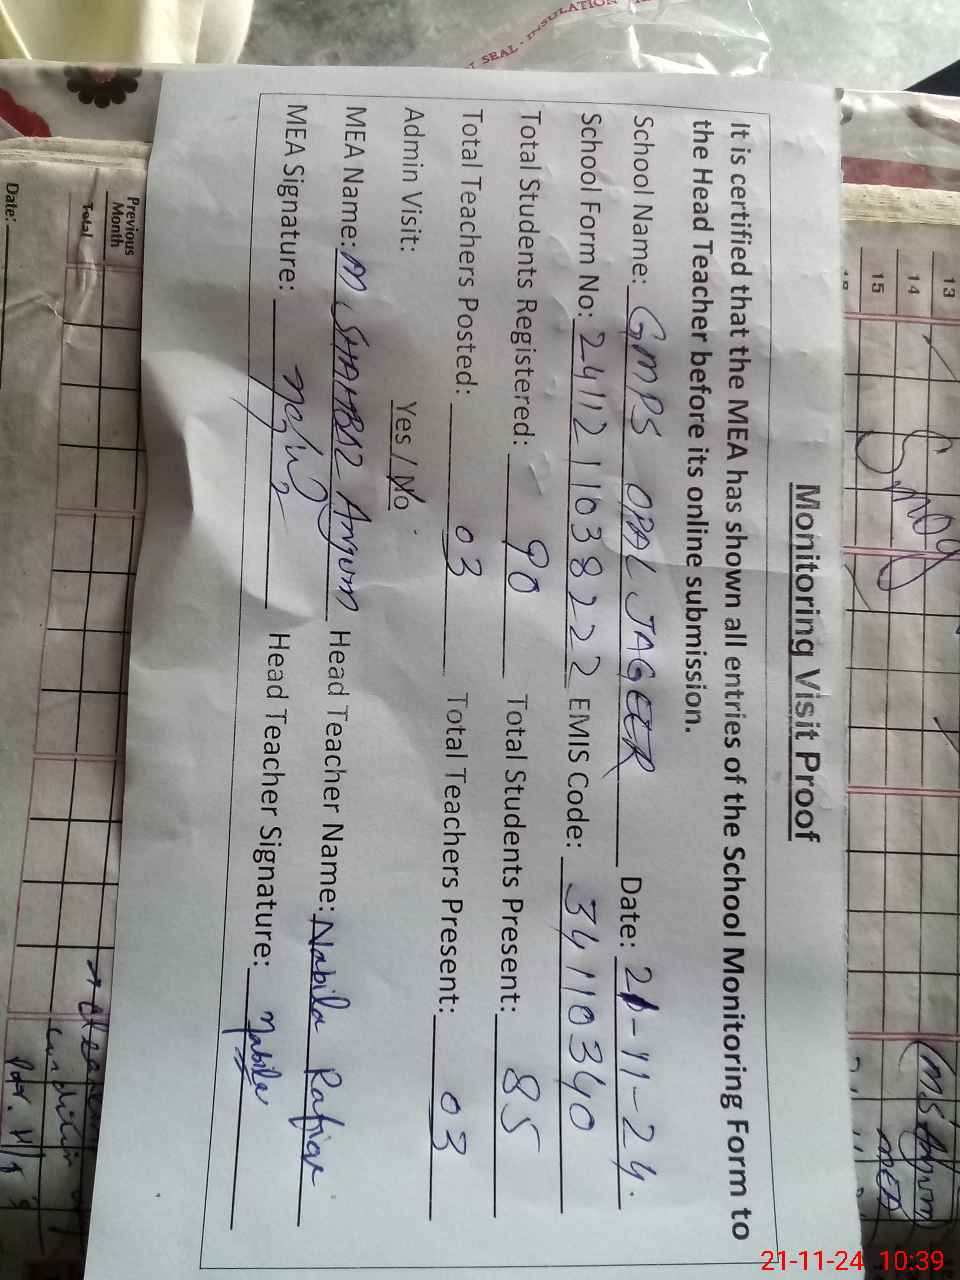 SEAL - INSULATION
Monitoring Visit Proof
It is certified that the MEA has shown all entries of the School Monitoring Form to
the Head Teacher before its online submission.
School Name: GMPS OPAL JAGEER Date: 21-11-24.
School Form No: 2411211038222 EMIS Code: 34110340
Total Students Registered: 90 Total Students Present: 85
Total Teachers Posted: 03 Total Teachers Present: 03
Admin Visit: Yes / No
MEA Name: M SHAHBAZ Anjum Head Teacher Name: Nabila Rafiqe
MEA Signature: Head Teacher Signature: Nabila
13
14
15
MEA
Previous
Month
Total
Date:
21-11-24 10:39